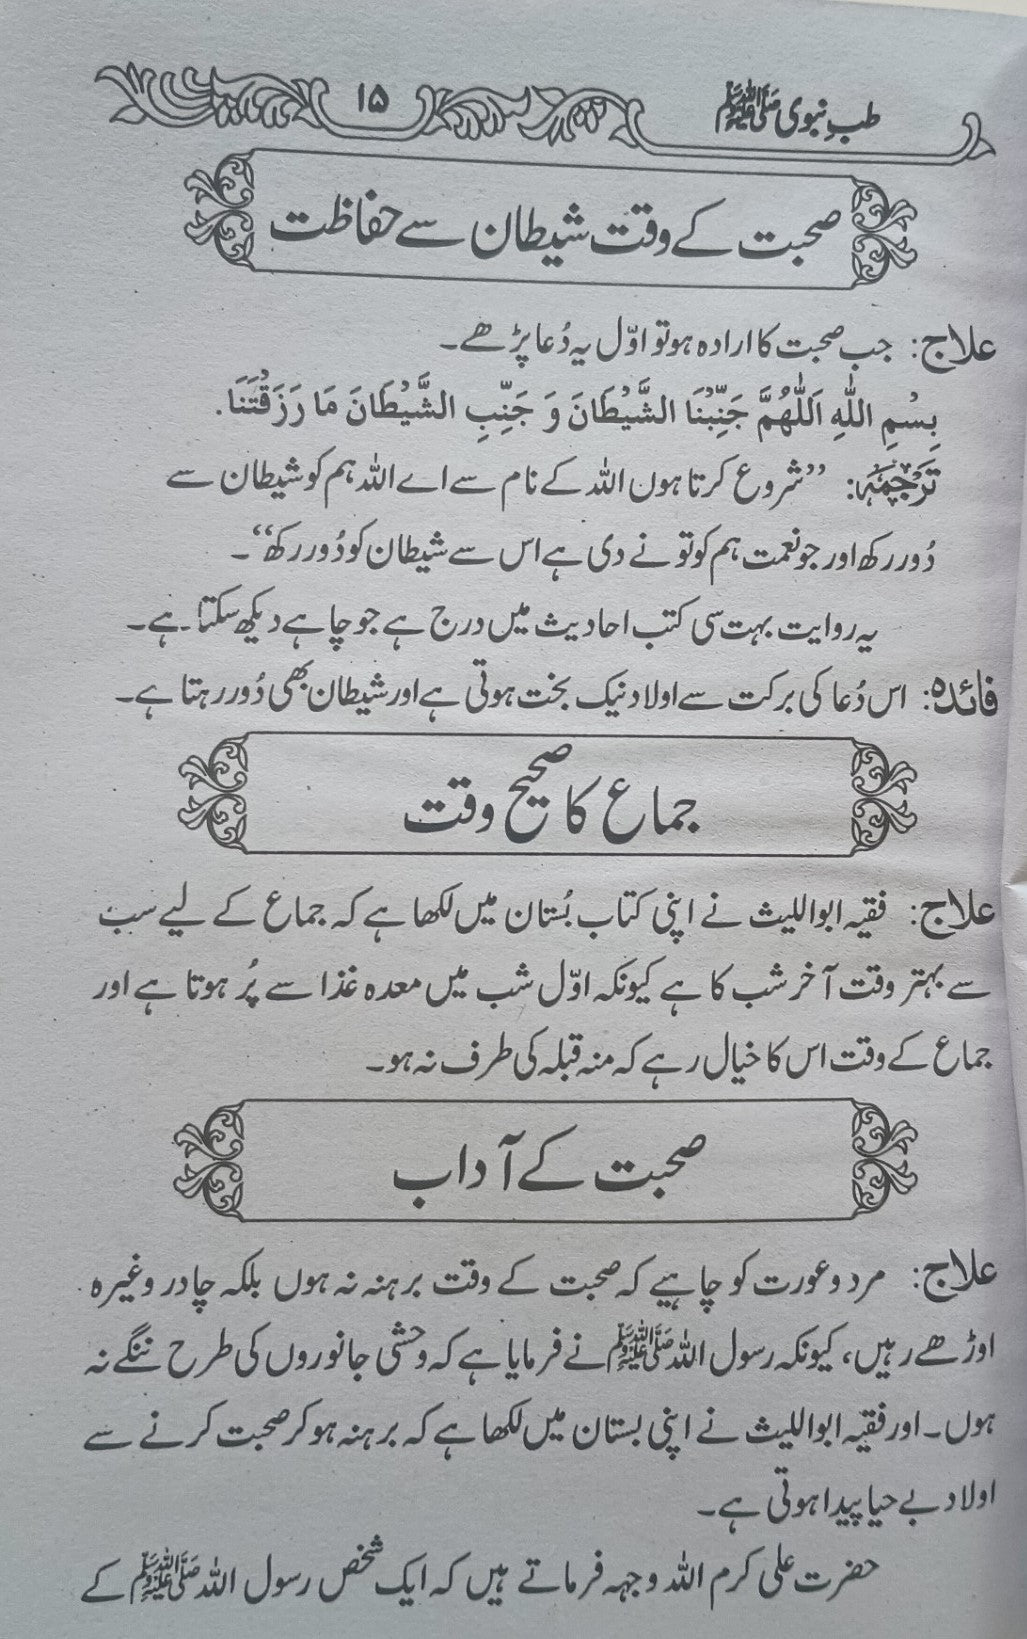 طبِ نبوی ﷺ
۱۵
صحبت کے وقت شیطان سے حفاظت
علاج: جب صحبت کا ارادہ ہو تو اوّل یہ دُعا پڑھے۔
بِسْمِ اللّٰهِ اَللّٰهُمَّ جَنِّبْنَا الشَّيْطَانَ وَ جَنِّبِ الشَّيْطَانَ مَا رَزَقْتَنَا.
تَرْجَمَہ: ’’شروع کرتا ہوں اللہ کے نام سے اے اللہ ہم کو شیطان سے
دُور رکھ اور جو نعمت ہم کو تو نے دی ہے اس سے شیطان کو دُور رکھ‘‘۔
یہ روایت بہت سی کتب احادیث میں درج ہے جو چاہے دیکھ سکتا ہے۔
فائدہ: اس دُعا کی برکت سے اولاد نیک بخت ہوتی ہے اور شیطان بھی دُور رہتا ہے۔
جماع کا صحیح وقت
علاج: فقیہ ابواللیث نے اپنی کتاب بُستان میں لکھا ہے کہ جماع کے لیے سب
سے بہتر وقت آخر شب کا ہے کیونکہ اوّل شب میں معدہ غذا سے پُر ہوتا ہے اور
جماع کے وقت اس کا خیال رہے کہ منہ قبلہ کی طرف نہ ہو۔
صحبت کے آداب
علاج: مرد و عورت کو چاہیے کہ صحبت کے وقت برہنہ نہ ہوں بلکہ چادر وغیرہ
اوڑھے رہیں، کیونکہ رسول اللہ ﷺ نے فرمایا ہے کہ وحشی جانوروں کی طرح ننگے نہ
ہوں۔ اور فقیہ ابواللیث نے اپنی بستان میں لکھا ہے کہ برہنہ ہو کر صحبت کرنے سے
اولاد بے حیا پیدا ہوتی ہے۔
حضرت علی کرم اللہ وجہہ فرماتے ہیں کہ ایک شخص رسول اللہ ﷺ کے